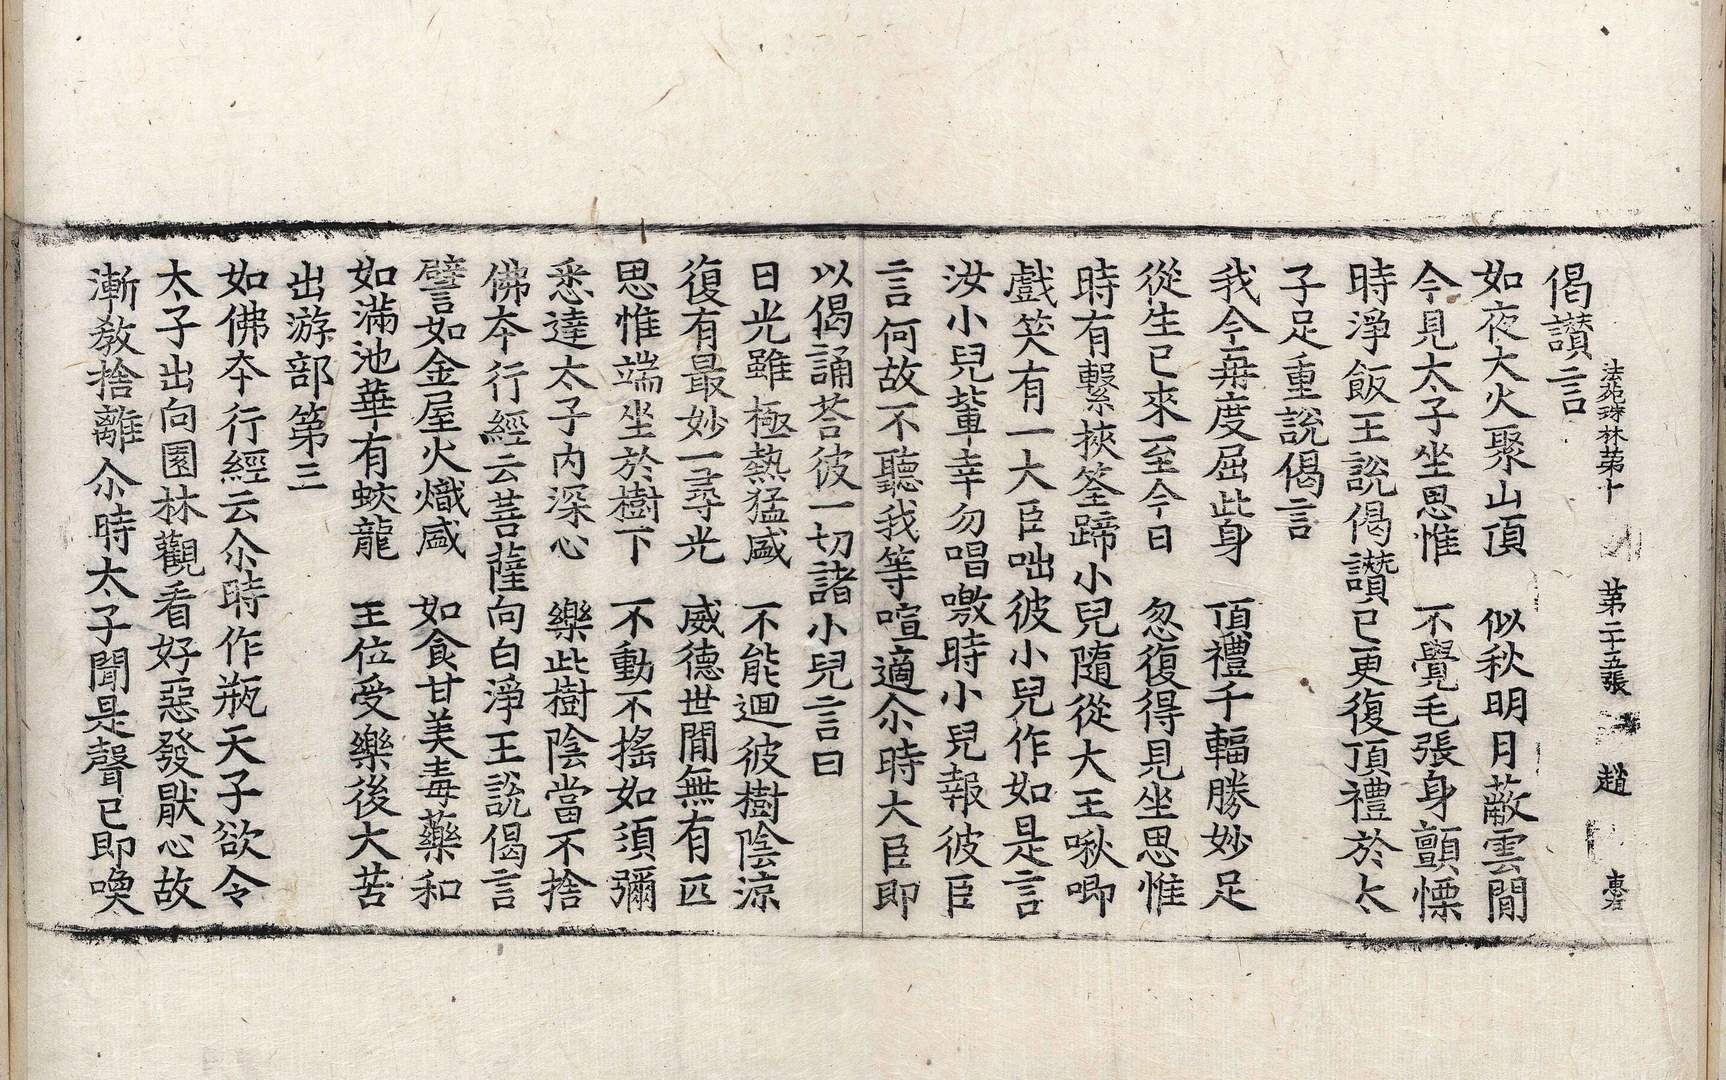 偈讃言
法苑珠林苐十 苐二十五張 趙
如夜大火聚山頂 似秋明月蔽雲閒
今見太子坐思惟 不覺毛張身顫慄
時淨飯王說偈讃已更復頂禮於太
子足重說偈言
我今再度屈此身 頂禮千輻勝妙足
從生已來至今日 忽復得見坐思惟
時有繫挾筌蹄小兒隨從大王啾唧
戲笑有一大臣咄彼小兒作如是言
汝小兒輩幸勿唱噭時小兒報彼臣
言何故不聽我等喧適尒時大臣即
以偈誦荅彼一切諸小兒言曰
日光雖極熱猛盛 不能迴彼樹陰涼
復有最妙一尋光 威德世閒無有匹
思惟端坐於樹下 不動不搖如須彌
悉達太子內深心 樂此樹陰當不捨
佛夲行經云菩薩向白淨王說偈言
譬如金屋火熾盛 如食甘美毒藥和
如滿池華有蛟龍 王位受樂後大苦
出游部第三
如佛夲行經云尒時作瓶天子欲令
太子出向園林觀看好惡發猒心故
漸教捨離尒時太子聞是聲已即喚